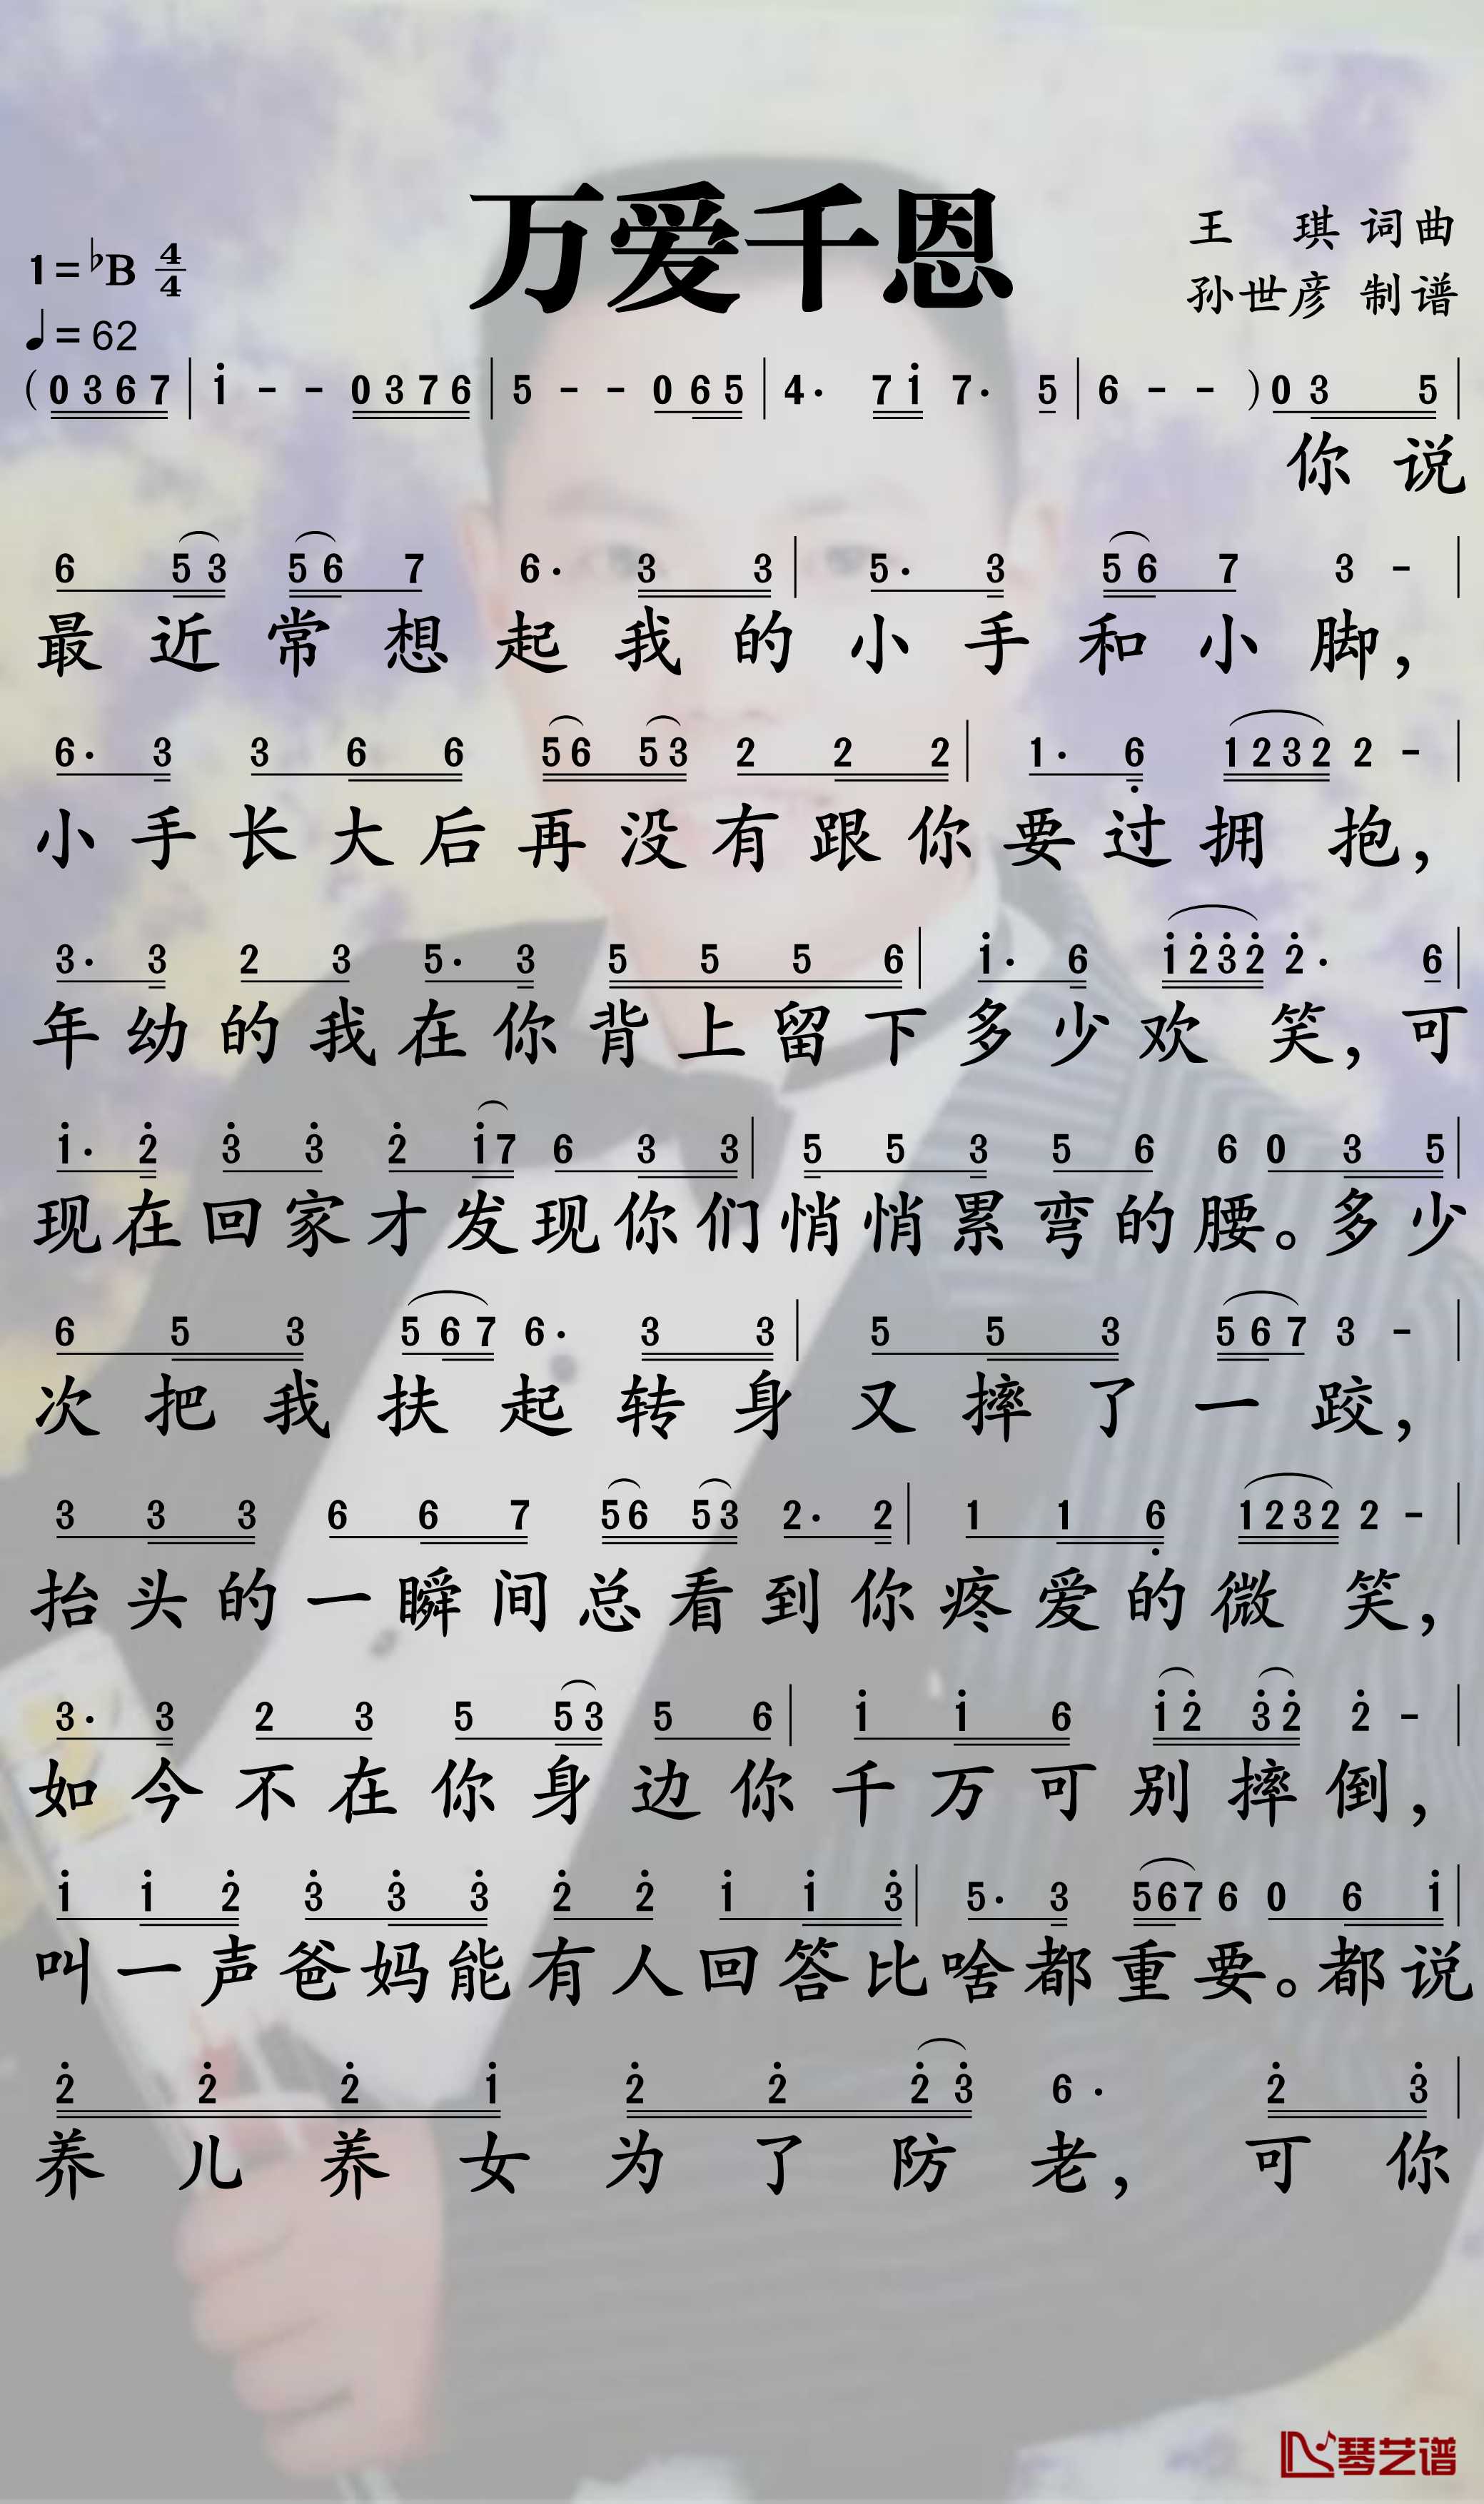 万爱千恩
王 琪 词曲
孙世彦 制谱
1=♭B 4/4
♩=62
(0 3 6 7 | i̇ - - 0 3 7 6 | 5 - - 0 6 5 | 4· 7 i̇ 7· 5 | 6 - - ) 0 3 5 |
你 说
6 5 3 5 6 7 6· 3 3 | 5· 3 5 6 7 3 - |
最 近 常 想 起 我 的 小 手 和 小 脚,
6· 3 3 6 6 5 6 5 3 2 2 2 | 1· 6̣ 1 2 3 2 2 - |
小 手 长 大 后 再 没 有 跟 你 要 过 拥 抱,
3· 3 2 3 5· 3 5 5 5 6 | i̇· 6 i̇ 2̇ 3̇ 2̇ 2̇· 6 |
年 幼 的 我 在 你 背 上 留 下 多 少 欢 笑, 可
i̇· 2̇ 3̇ 3̇ 2̇ i̇ 7 6 3 3 | 5 5 3 5 6 6 0 3 5 |
现 在 回 家 才 发 现 你 们 悄 悄 累 弯 的 腰。多 少
6 5 3 5 6 7 6· 3 3 | 5 5 3 5 6 7 3 - |
次 把 我 扶 起 转 身 又 摔 了 一 跤,
3 3 3 6 6 7 5 6 5 3 2· 2 | 1 1 6̣ 1 2 3 2 2 - |
抬 头 的 一 瞬 间 总 看 到 你 疼 爱 的 微 笑,
3· 3 2 3 5 5 3 5 6 | i̇ i̇ 6 i̇ 2̇ 3̇ 2̇ 2̇ - |
如 今 不 在 你 身 边 你 千 万 可 别 摔 倒,
i̇ i̇ 2̇ 3̇ 3̇ 3̇ 2̇ 2̇ i̇ i̇ 3̇ | 5· 3 5 6 7 6 0 6 i̇ |
叫 一 声 爸 妈 能 有 人 回 答 比 啥 都 重 要。都 说
2̇ 2̇ 2̇ i̇ 2̇ 2̇ 2̇ 3̇ 6· 2̇ 3̇ |
养 儿 养 女 为 了 防 老, 可 你
琴艺谱